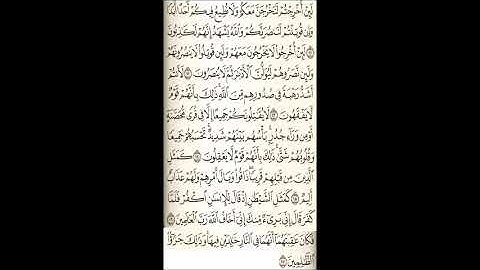 لَئِنْ أُخْرِجْتُمْ لَنَخْرُجَنَّ مَعَكُمْ وَلَا نُطِيعُ فِيكُمْ أَحَدًا أَبَدًا
وَإِن قُوتِلْتُمْ لَنَنصُرَنَّكُمْ وَاللَّهُ يَشْهَدُ إِنَّهُمْ لَكَاذِبُونَ
۝١١ لَئِنْ أُخْرِجُوا لَا يَخْرُجُونَ مَعَهُمْ وَلَئِن قُوتِلُوا لَا يَنصُرُونَهُمْ
وَلَئِن نَّصَرُوهُمْ لَيُوَلُّنَّ الْأَدْبَارَ ثُمَّ لَا يُنصَرُونَ ۝١٢ لَأَنتُمْ
أَشَدُّ رَهْبَةً فِي صُدُورِهِم مِّنَ اللَّهِ ذَٰلِكَ بِأَنَّهُمْ قَوْمٌ
لَّا يَفْقَهُونَ ۝١٣ لَا يُقَاتِلُونَكُمْ جَمِيعًا إِلَّا فِي قُرًى مُّحَصَّنَةٍ
أَوْ مِن وَرَاءِ جُدُرٍ بَأْسُهُم بَيْنَهُمْ شَدِيدٌ تَحْسَبُهُمْ جَمِيعًا
وَقُلُوبُهُمْ شَتَّىٰ ذَٰلِكَ بِأَنَّهُمْ قَوْمٌ لَّا يَعْقِلُونَ ۝١٤ كَمَثَلِ
الَّذِينَ مِن قَبْلِهِمْ قَرِيبًا ذَاقُوا وَبَالَ أَمْرِهِمْ وَلَهُمْ عَذَابٌ
أَلِيمٌ ۝١٥ كَمَثَلِ الشَّيْطَانِ إِذْ قَالَ لِلْإِنسَانِ اكْفُرْ فَلَمَّا
كَفَرَ قَالَ إِنِّي بَرِيءٌ مِّنكَ إِنِّي أَخَافُ اللَّهَ رَبَّ الْعَالَمِينَ ۝١٦
فَكَانَ عَاقِبَتَهُمَا أَنَّهُمَا فِي النَّارِ خَالِدَيْنِ فِيهَا وَذَٰلِكَ جَزَاءُ
الظَّالِمِينَ ۝١٧